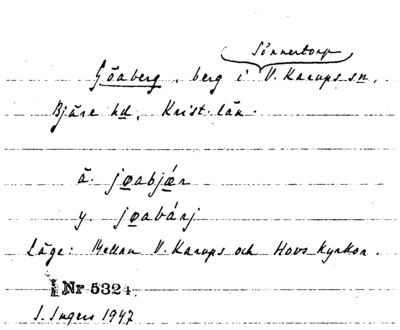 Sönnertorp
Göaberg, berg i V. Karups sn,
Bjäre hd, Krist. län.
ä. jøabjær
y. jøabárj
Läge: Mellan V. Karups och Hovs kyrkor.
Nr 5324
I. Ingers 1947